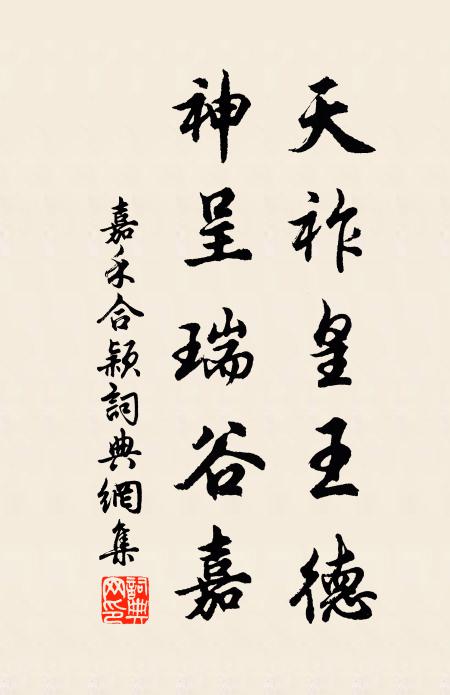 天祚皇王德
神呈瑞谷嘉
嘉禾合颖詞典網集
詞典
网印